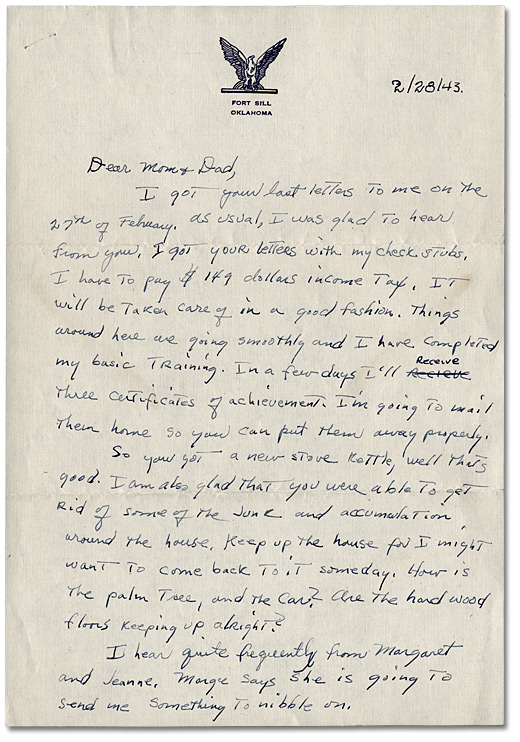 FORT SILL
OKLAHOMA
2/28/43.
Dear Mom & Dad,
I got your last letters to me on the
27th of February. As usual, I was glad to hear
from you. I got your letters with my check stubs.
I have to pay $ 149 dollars income tax. It
will be taken care of in a good fashion. Things
around here are going smoothly and I have completed
my basic training. In a few days I'll Receive
three certificates of achievement. I'm going to mail
them home so you can put them away properly.
So you got a new stove Kettle, well that's
good. I am also glad that you were able to get
rid of some of the junk and accumulation
around the house. Keep up the house for I might
want to come back to it someday. How is
the palm tree, and the car? Are the hard wood
floors keeping up alright?
I hear quite frequently from Margaret
and Jeanne. Marge says she is going to
send me something to nibble on.